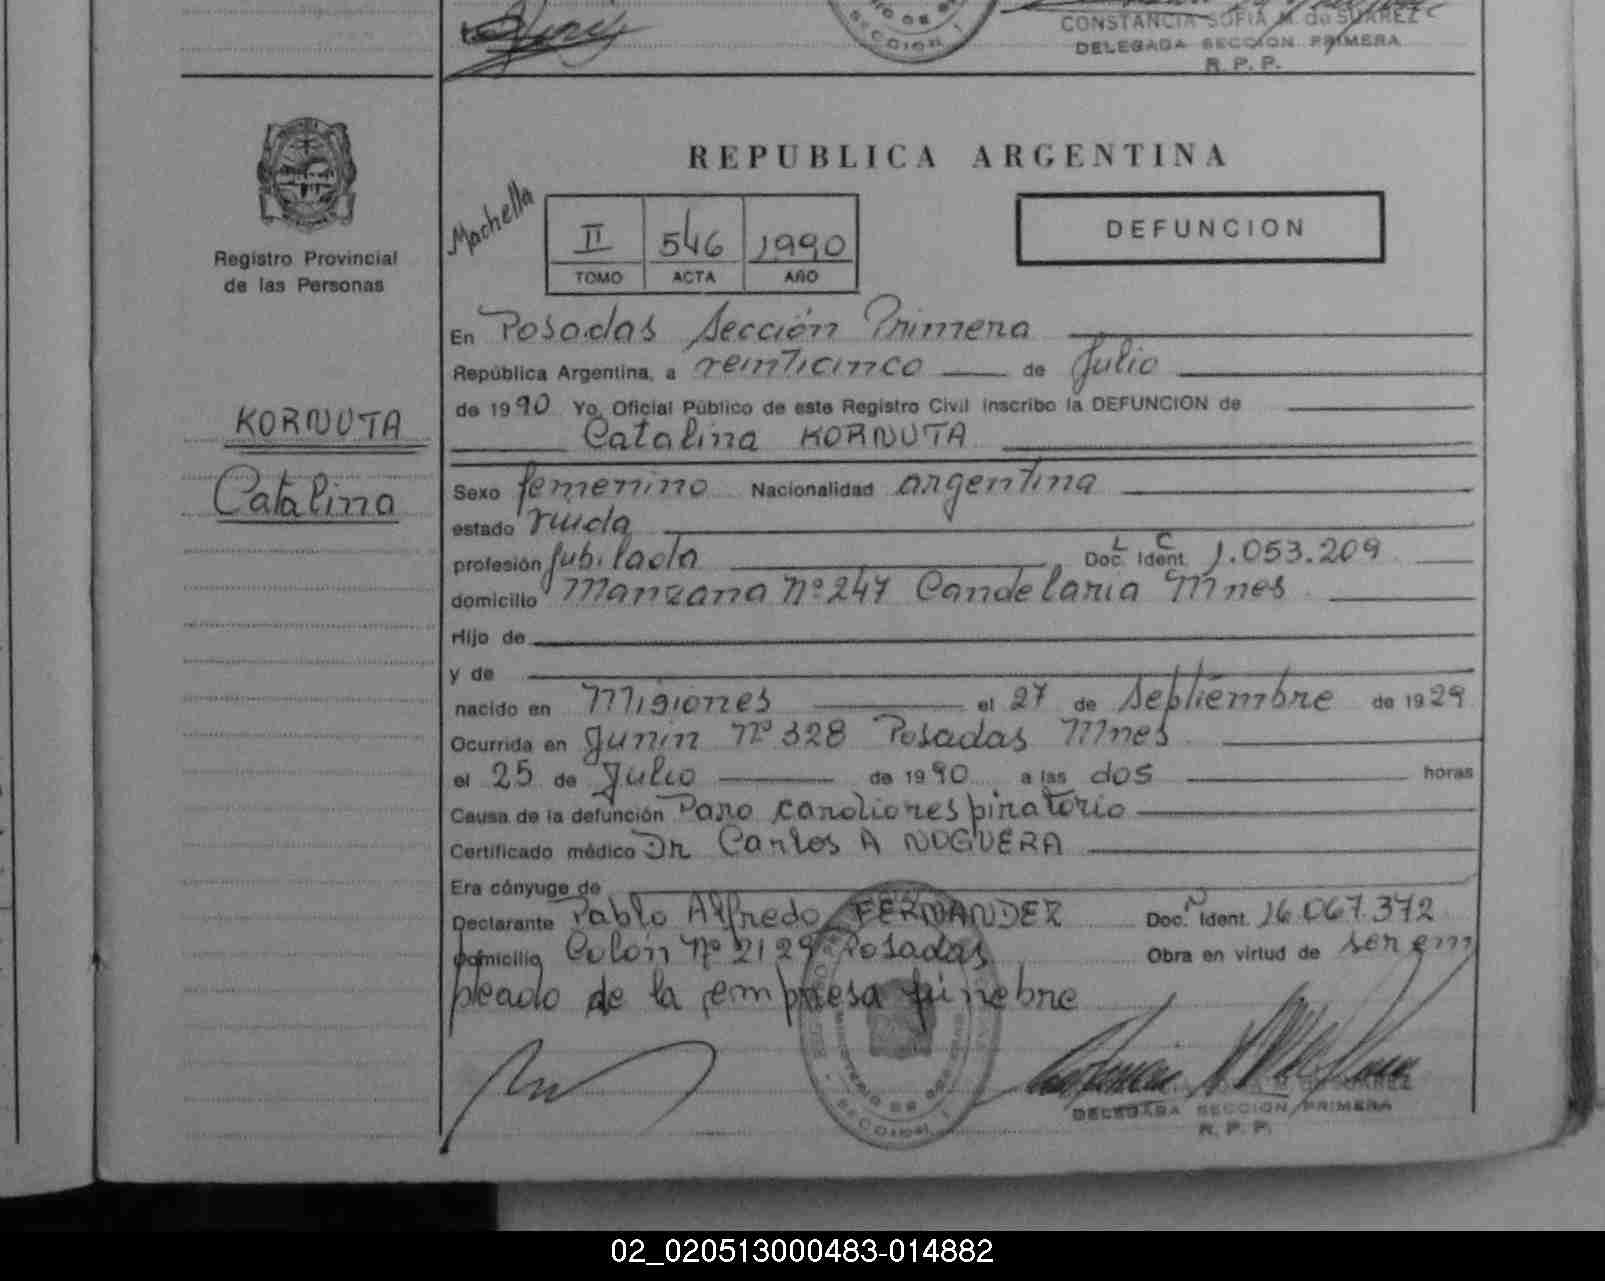 CONSTANCIA SOFIA M. de SUAREZ
DELEGADA SECCION PRIMERA
R. P. P.
SECCION 1
Registro Provincial
de las Personas
KORNUTA
Catalina
REPUBLICA ARGENTINA
Machella
II 546 1990
TOMO ACTA AÑO
DEFUNCION
En Posadas Sección Primera
República Argentina, a veinticinco de Julio
de 1990 Yo, Oficial Público de este Registro Civil inscribo la DEFUNCION de
Catalina KORNUTA
Sexo femenino Nacionalidad argentina
estado viuda
profesión Jubilada Doc. Ident. L C 1.053.209
domicilio Manzana Nº 247 Candelaria Mnes
Hijo de
y de
nacido en Misiones el 27 de Septiembre de 1929
Ocurrida en Junín Nº 328 Posadas Mnes
el 25 de Julio de 1990 a las dos horas
Causa de la defunción Paro cardiorespiratorio
Certificado médico Dr Carlos A NOGUERA
Era cónyuge de
Declarante Pablo Alfredo FERNANDEZ Doc. N Ident. 16.067.372
Domicilio Colón Nº 2129 Posadas Obra en virtud de ser em
pleado de la empresa fúnebre
MINISTERIO DE GOBIERNO
SECCION 1
M. de SUAREZ
DELEGADA SECCION PRIMERA
R. P. P.
02_020513000483-014882